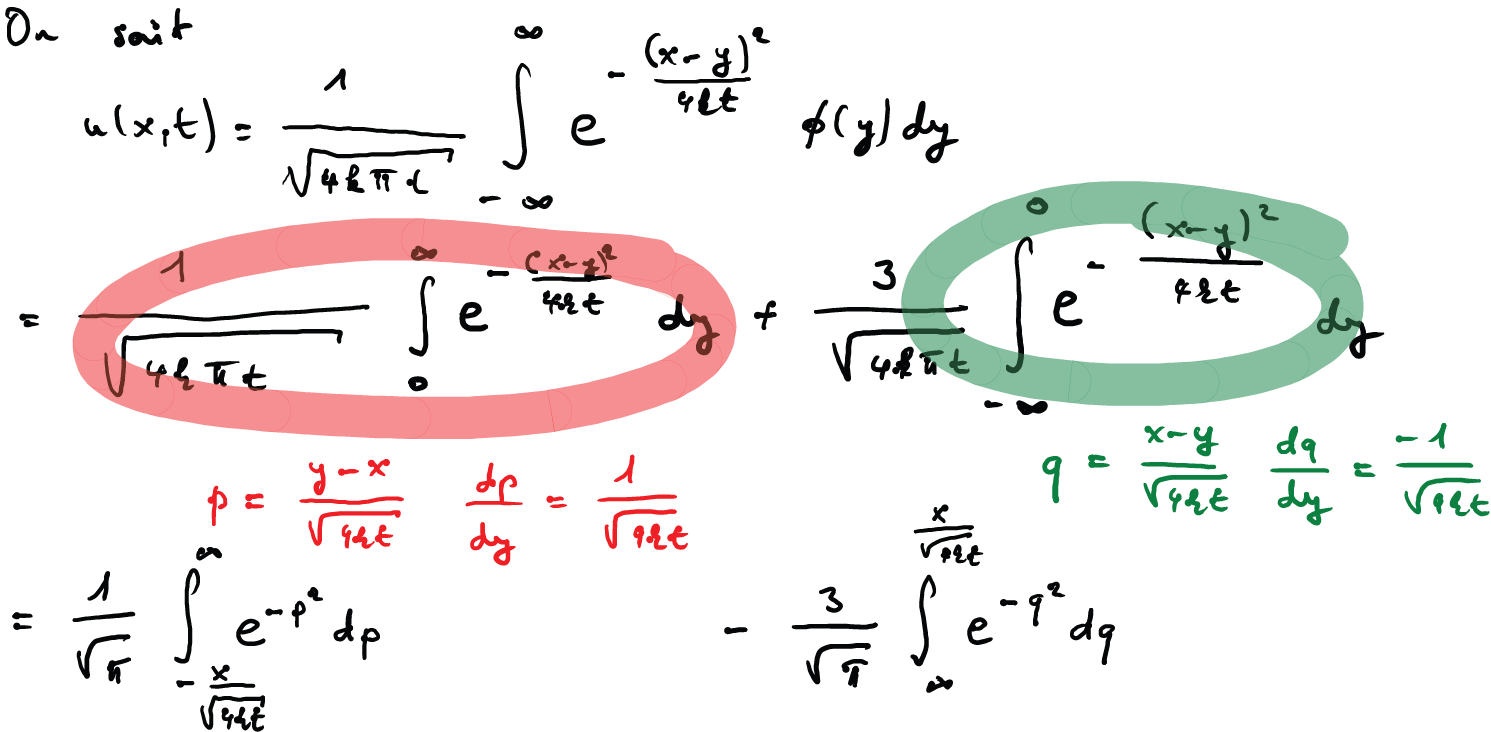 On sait
u(x,t) = 1/√(4kπt) ∫_{-∞}^{∞} e^{-(x-y)²/4kt} φ(y) dy
= 1/√(4kπt) ∫_{0}^{∞} e^{-(x-y)²/4kt} dy + 3/√(4kπt) ∫_{-∞}^{0} e^{-(x-y)²/4kt} dy
p = (y-x)/√(4kt) dp/dy = 1/√(4kt) q = (x-y)/√(4kt) dq/dy = -1/√(4kt)
= 1/√π ∫_{-x/√(4kt)}^{∞} e^{-p²} dp - 3/√π ∫_{∞}^{x/√(4kt)} e^{-q²} dq